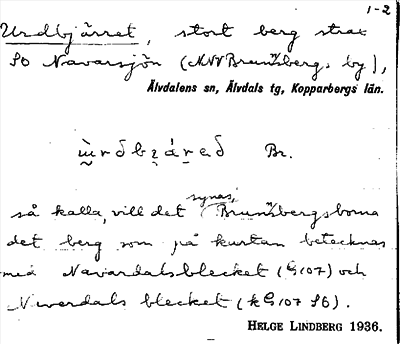 1-2
Urdbjärret, stort berg strax
SO Navarsjön (NNV Brunnsberg, by),
Älvdalens sn, Älvdals tg, Kopparbergs län.
Br.
så kalla, vill det synas, Brunnsbergsborna
det berg som på kartan betecknas
med Navardalsblecket (G107) och
Naverdals blecket (kG107 SO).
HELGE LINDBERG 1936.